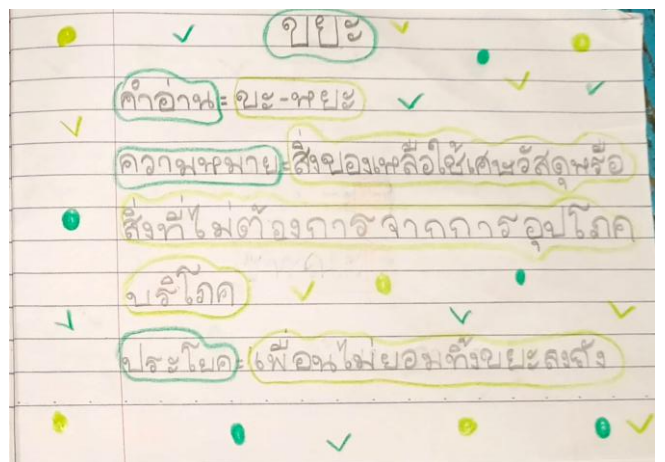 ขยะ
คำอ่าน = ขะ-หยะ
ความหมาย = สิ่งของเหลือใช้เศษวัสดุหรือ
สิ่งที่ไม่ต้องการจากการอุปโภค
บริโภค
ประโยค = เพื่อนไม่ยอมทิ้งขยะลงถัง